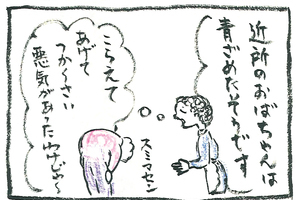 近所のおばちゃんは
青ざめたそうです
こらえて
あげて
つかぁさい
悪気があったわけじゃ〜
スミマセン